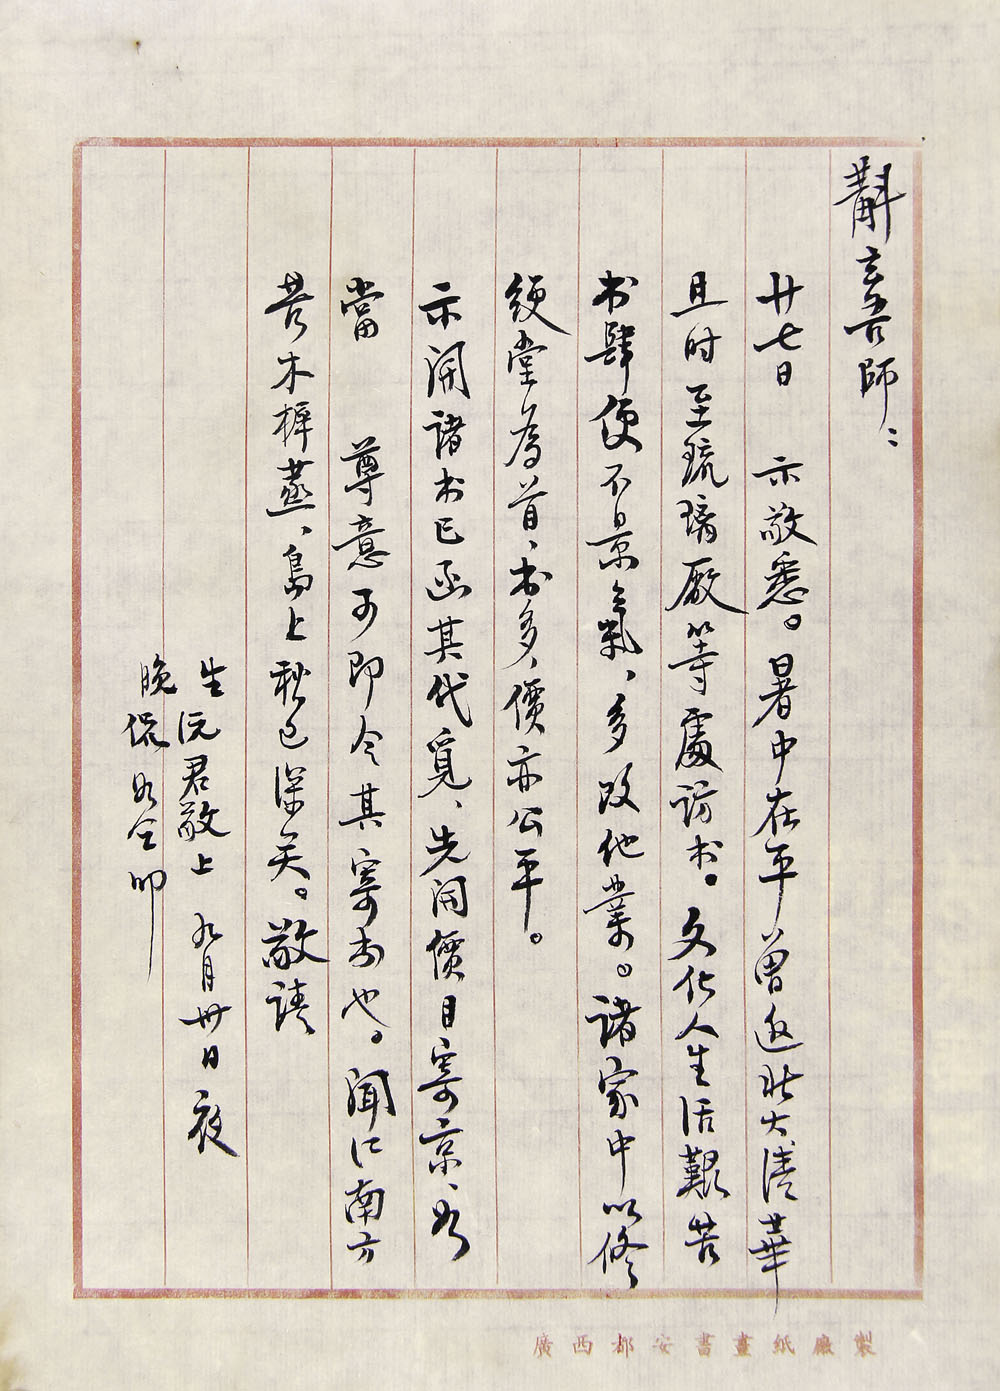 斠玄吾師：
廿七日　示敬悉。暑中在平曾返北大清華
且时至琉璃厰等處访书。文化人生活艱苦
书肆便不景氣、多改他業。諸家中以修
绠堂為首、书多、價亦公平。
示開諸书已函其代覓、先開價目寄京、若
當　尊意可即令其寄书也。闻江南方
苦木樨蒸、島上秋已深矣。敬請
生沅君敬上　九月卅日夜
晚侃如仝叩
廣西都安書畫紙廠製